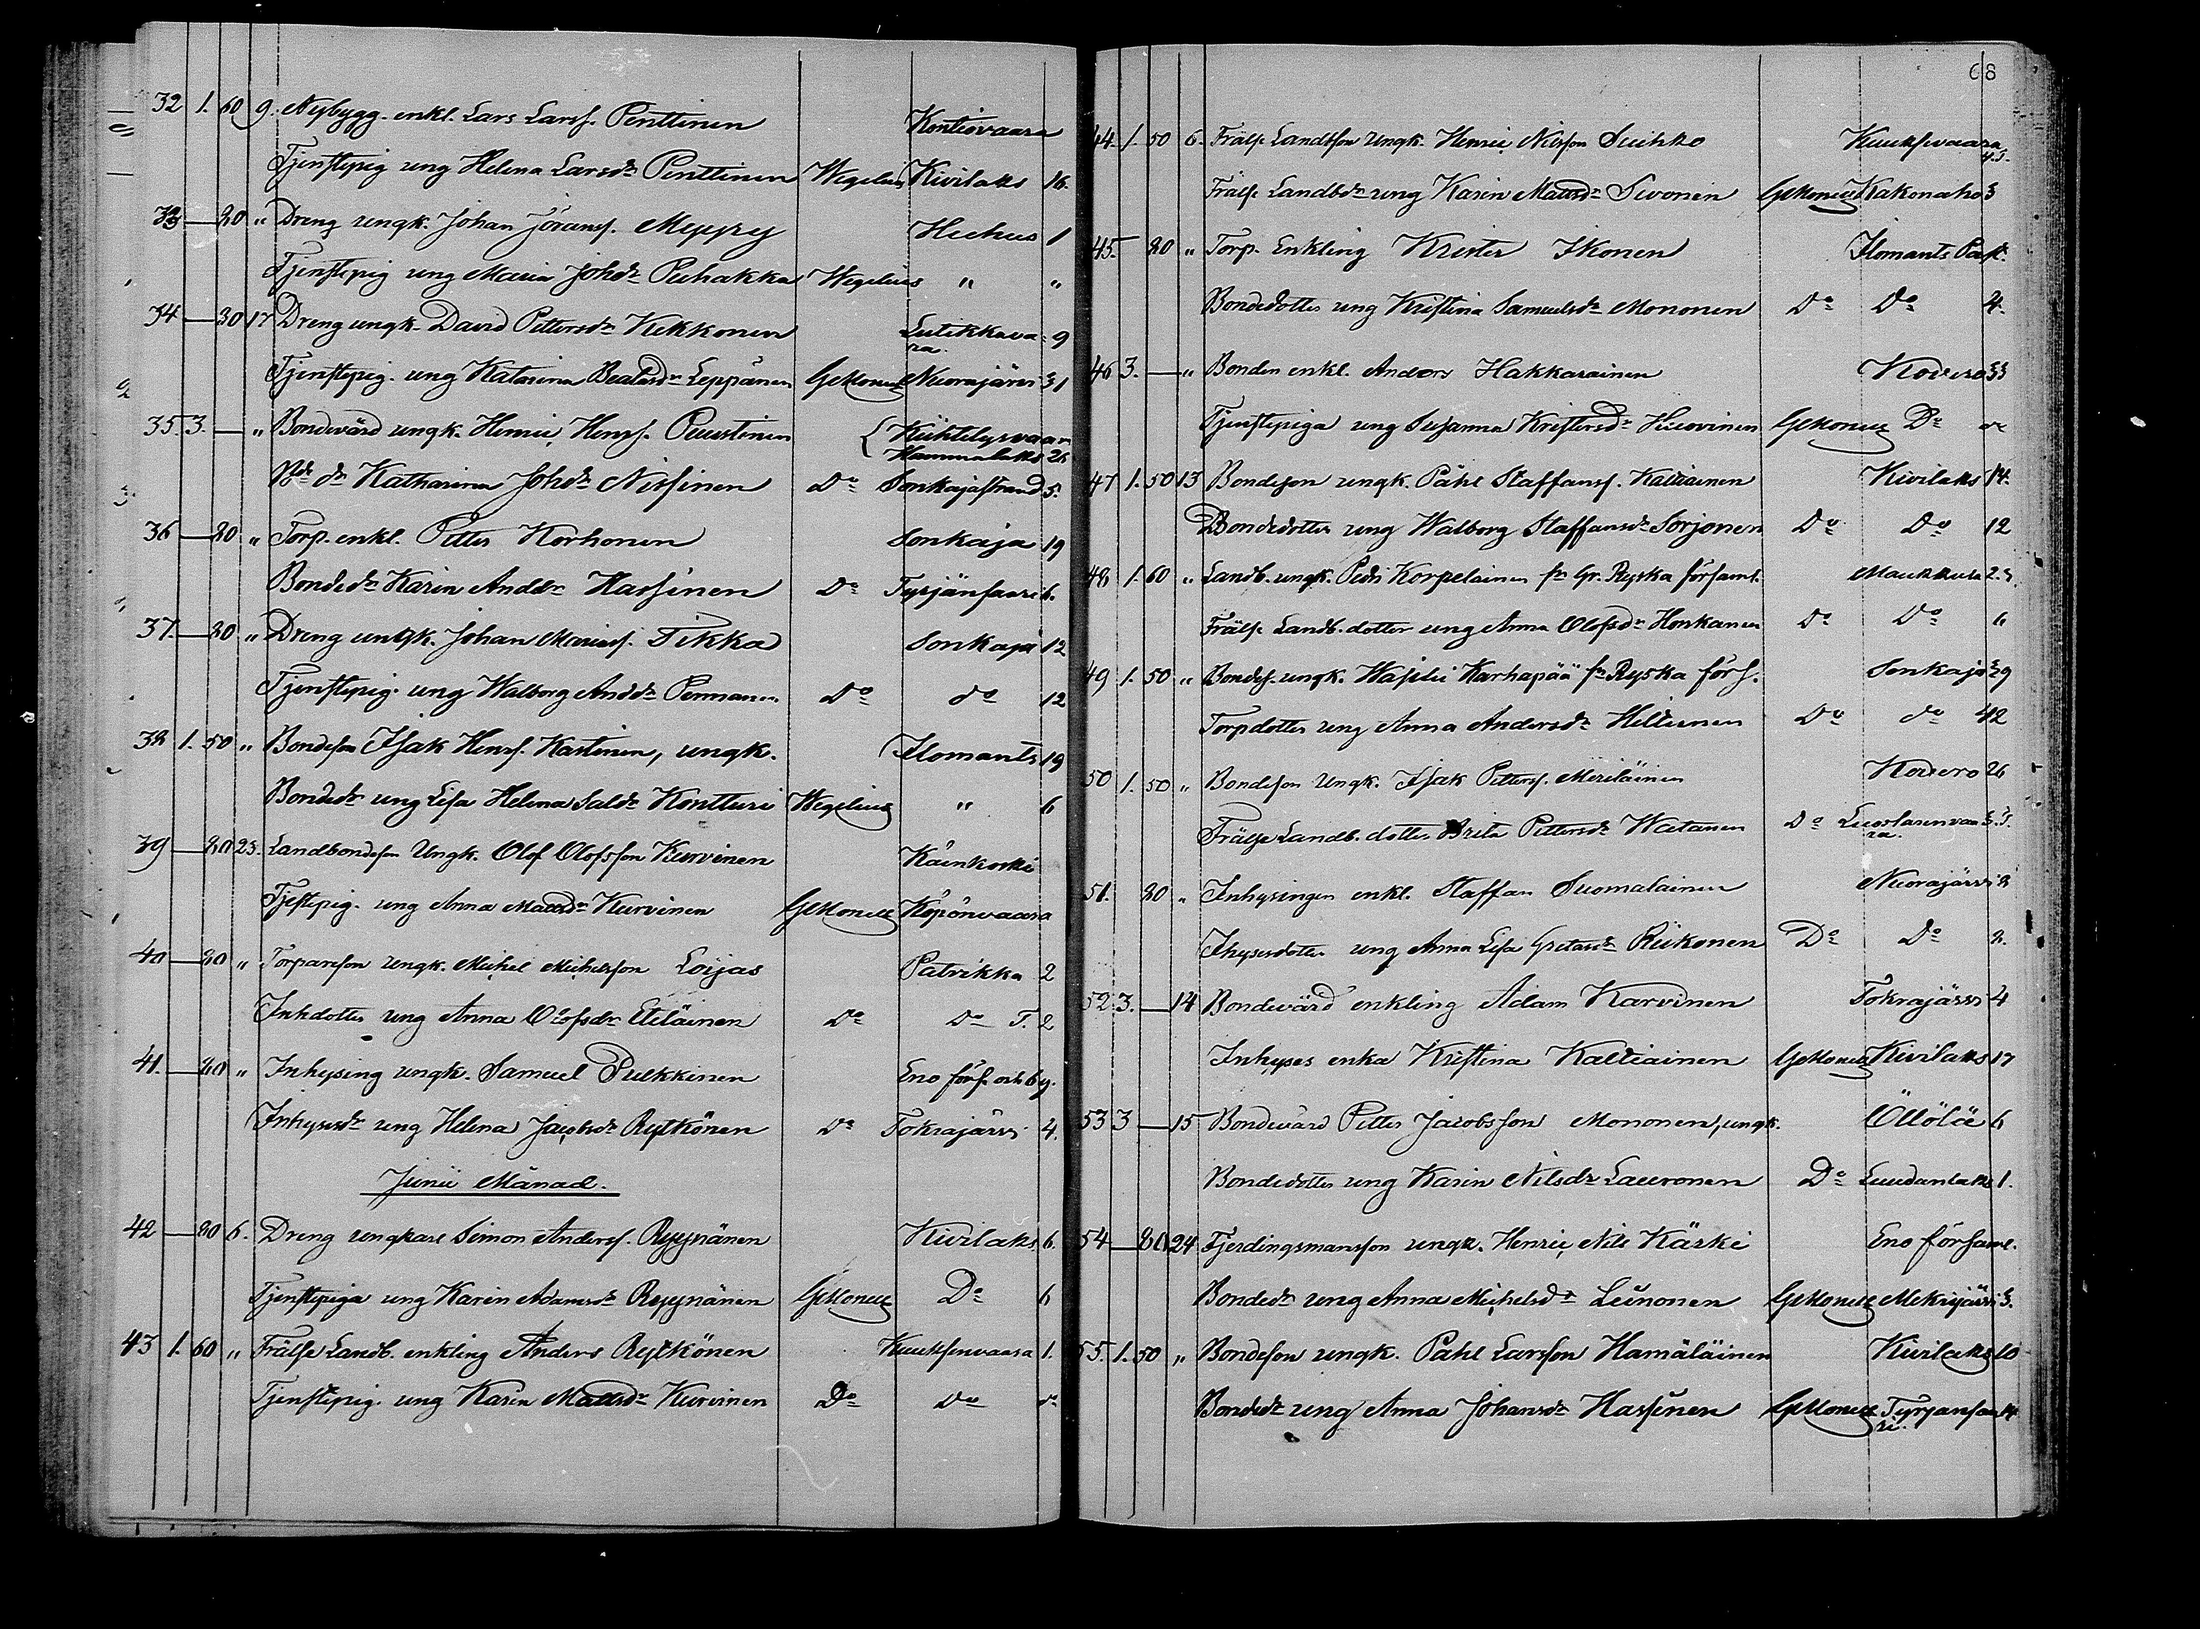 32 1. 60 9. Nybygg. enkl. Lars Larss. Penttinen Kontiovaara
Tjenstepig ung Helena Larsdr Penttinen Wegelius Kivilaks 16.
33 — 80 " Dreng ungk. Johan Jöranss. Myyry Huhus 1
Tjenstepig ung Maria Johdr Puhakka Wegelius " "
34 — 80 17 Dreng ungk. David Pettersdr Kekkonen Leitikkava= 9
ra.
Tjenstepig. ung Katarina Beatasdr Leppänen GMoneus Nuorajärvi 31
35. 3. — " Bondevärd ungk. Henric Henrs. Puustinen Kiihtelysvaara
Hammaslaks 26
Bdedr Katharina Johdr Nissinen Do Sonkajastrand 5.
36 — 80 " Torp. enkl. Petter Korhonen Sonkaja 19
Bondedr Karin Anddr Hassinen Do Tyrjänsaari 6.
37. — 80 " Dreng ungk. Johan Mariass. Tikka Sonkaja 12
Tjenstepig. ung Walborg Anddr Pennanen Do do 12
38 1. 50 " Bondeson Isak Henrs. Karttunen, ungk. Ilomants 19
Bondedr ung Lisa Helena Saldr Kontturi Wegelius " 6
39 — 80 23. Landbondeson Ungk. Olof Olofsson Kurvinen Käenkoski
Tjestepig. ung Anna Matsdr Kurvinen GMoneus Köpönvaara
40 — 80 " Torpareson ungk. Michel Michelsson Loijas Patrikka 2
Inhdotter ung Anna Olofsdr Eteläinen Do Do T. 2
41. — 80 " Inhysing ungk. Samuel Pulkkinen Eno förs. och by.
Inhysesdr ung Helena Jacobsdr Rytkönen Do Tokrajärvi 4.
Junii Månad.
42 — 80 6. Dreng ungkarl Simon Anderss. Ryynänen Kivilaks 6.
Tjenstepiga ung Karin Adamsdr Ryynänen GMoneus Do 6
43 1. 60 " Frälse Landb. enkling Anders Rytkönen Kuuksenvaara 1.
Tjenstepig. ung Karin Matsdr Kurvinen Do Do do
68
44. 1. 50 6. Frälse Landbson Ungk. Henric Nilsson Suihko Kuuksevaara
4.S.
Frälse Landbdr ung Karin Matsdr Sivonen GMoneus Kakonaho 3
45. 80 " Torp. Enkling Krister Ikonen Ilomants Past.
Bondedotter ung Kristina Samuelsdr Mononen Do Do 4.
46 3. — " Bonden enkl. Anders Hakkarainen Kovero 33
Tjenstepiga ung Susanna Kristersdr Huovinen GMoneus Do
47 1. 50 13 Bondeson ungk. Påhl Staffanss. Kaltiainen Kivilaks 14.
Bondedotter ung Walborg Staffansdr Sorjonen Do Do 12
48 1. 60 " Landb. ungk. Pedri Korpelainen fr Gr. Ryska församl. Maukkula 2.
Frälse Landb. dotter ung Anna Olofsdr Honkanen Do Do 6
49 1. 50 " Bondes. ungk. Wasilei Karhapää fr Ryska förs. Sonkaja 29
Torpdotter ung Anna Andersdr Hiltunen Do do 42
50 1. 50 " Bondeson Ungk. Isak Petterss. Meriläinen Kovero 26
Frälse Landb. dotter Brita Pettersdr Watanen Do
ra.
51. 80 " Inhysingen enkl. Staffan Suomalainen Nuorajärvi 2
Ihysesdotter ung Anna Lisa Gretasdr Riikonen Do Do 2.
52 3. — 14 Bondevärd enkling Adam Karvinen Tokrajärvi 4
Inhyses enka Kristina Kaltiainen GMoneus Kivilaks 17
53 3 — 15 Bondevärd Petter Jacobsson Mononen, ungk. Öllölä 6
Bondedotter ung Karin Nilsdr Lauronen Do Luudanlaks 1.
54 — 80 24 Fjerdingsmansson ungk. Henric Nils Käski Eno församl.
Bondedr ung Anna Michelsdr Leinonen GMoneus Mekrijärvi 3.
55. 1. 50 " Bondeson ungk. Påhl Larsson Hämäläinen Kivilaks 10
Bondedr ung Anna Johansdr Hassinen GMoneus Tyrjänsaa 14
ri.